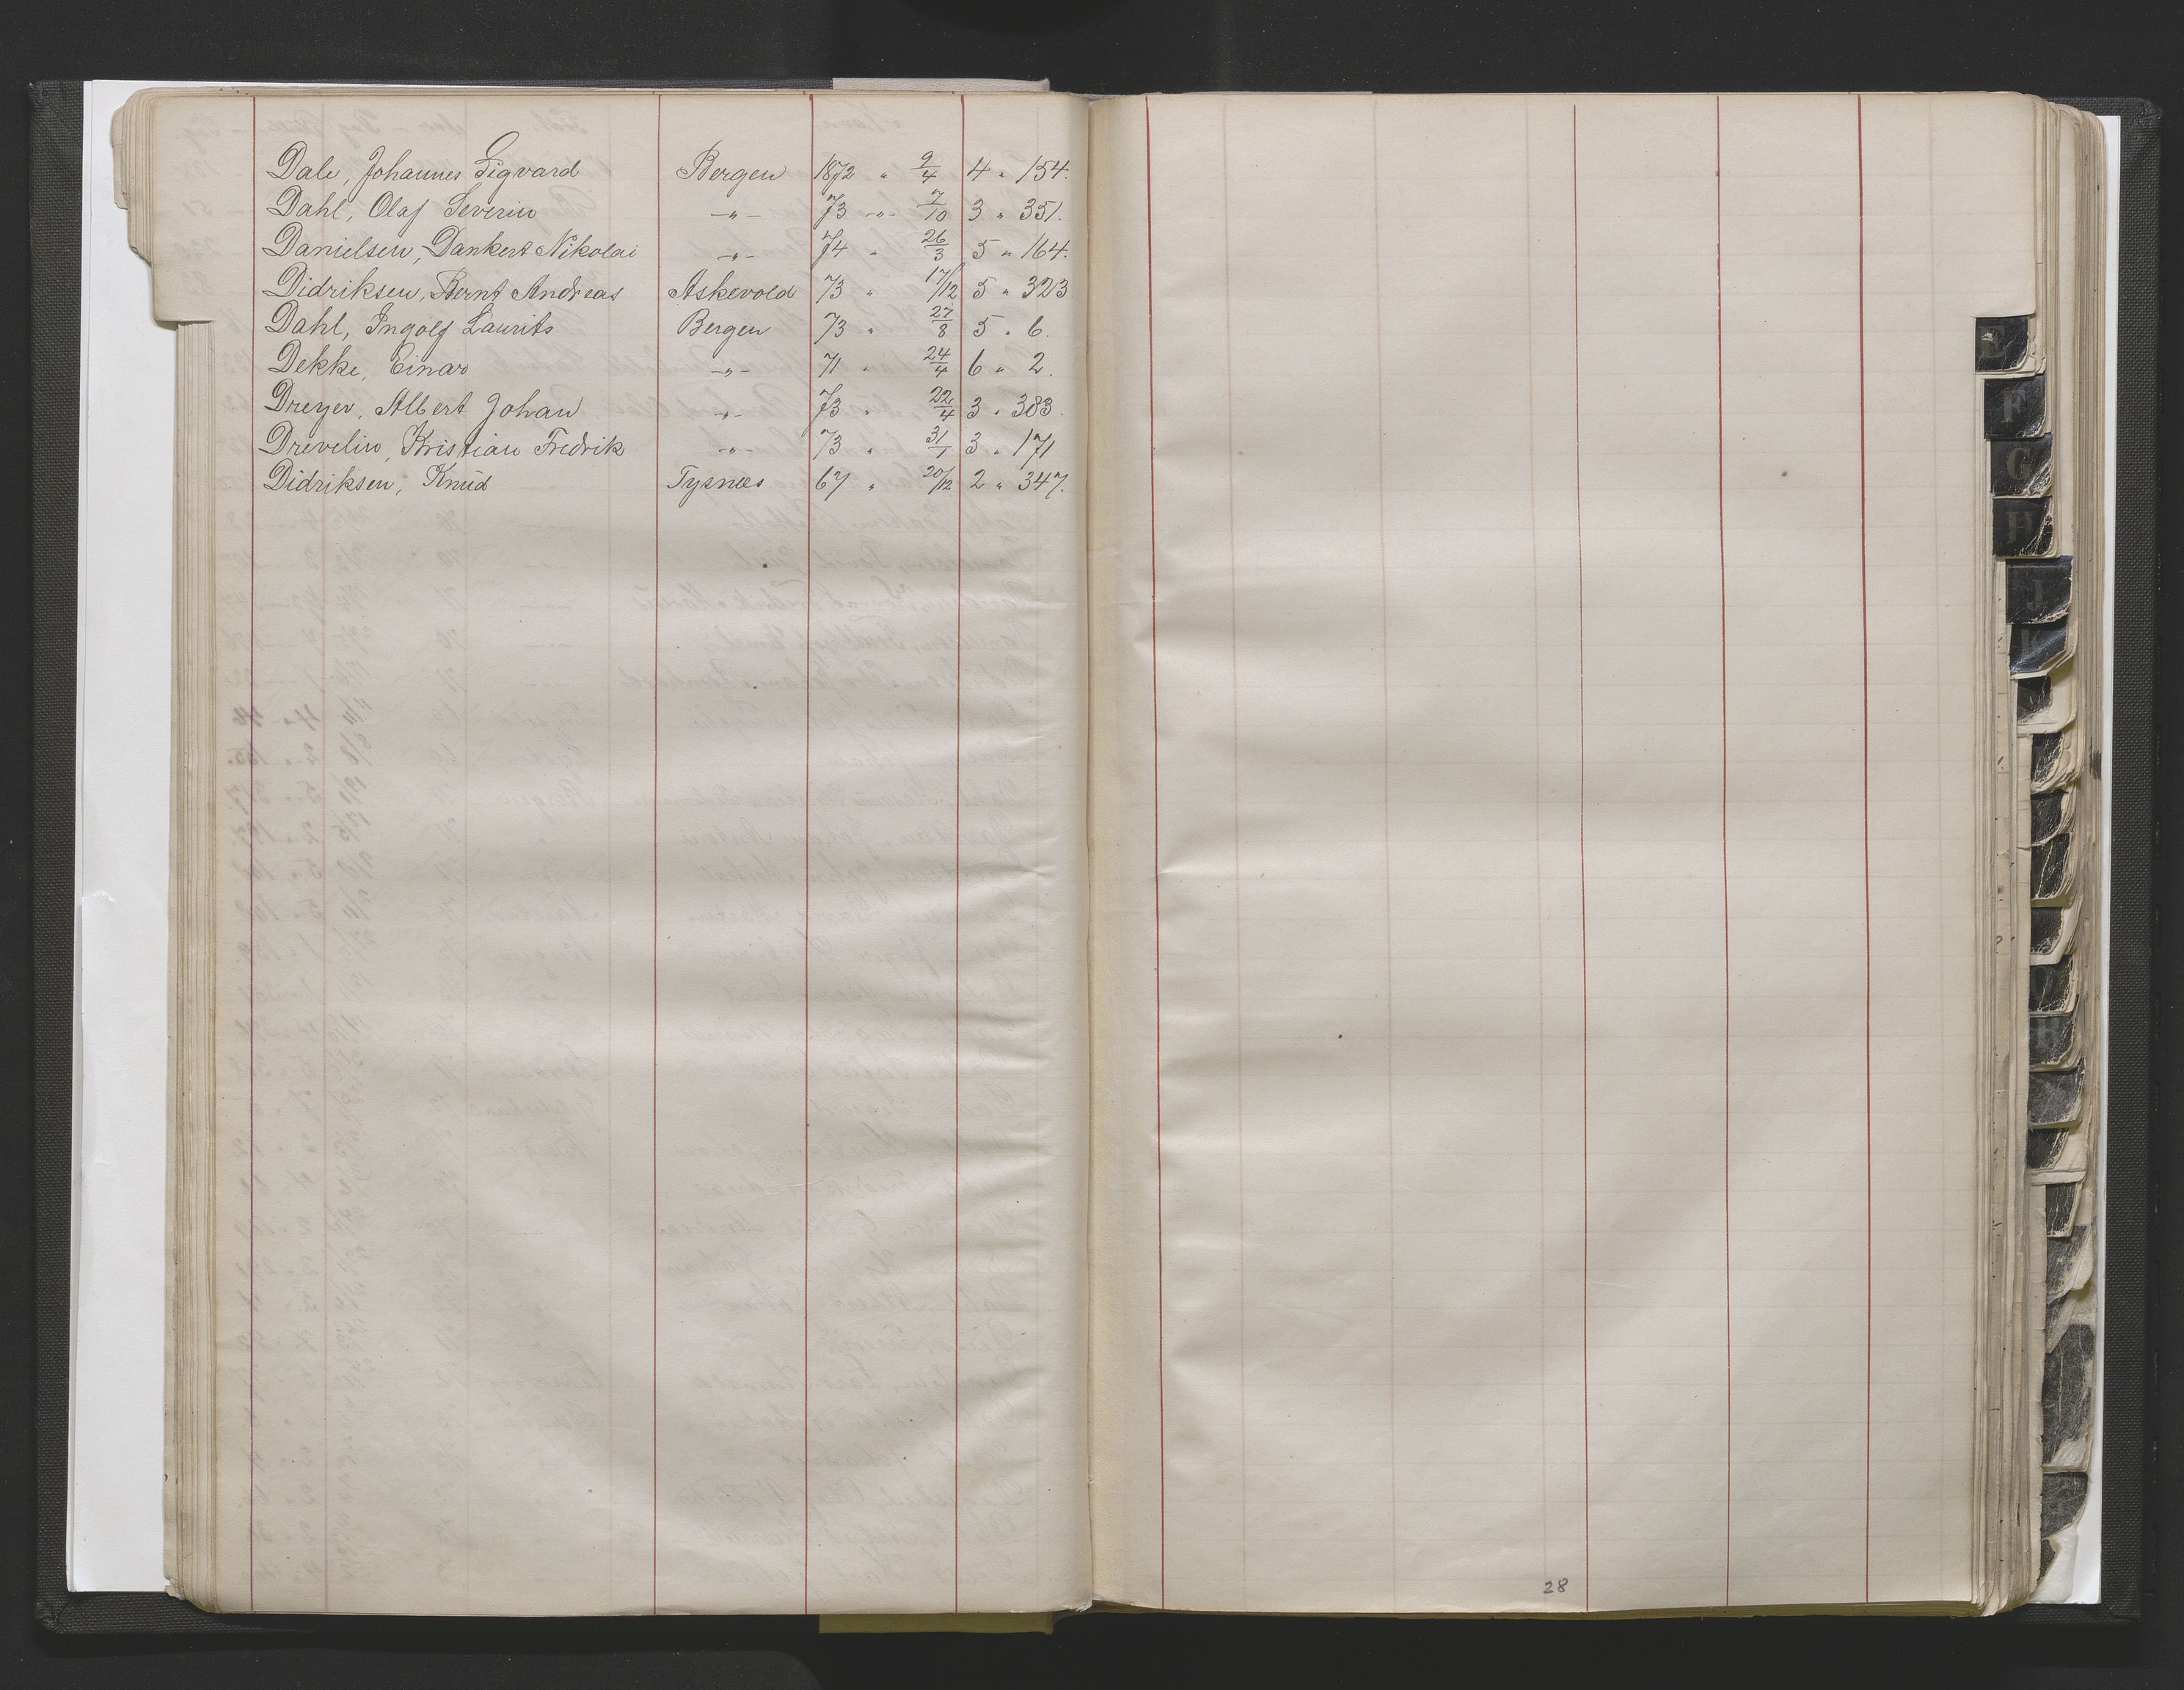 Dale, Johannes Sigvard Bergen 1872 " 9/4 4 " 154.
Dahl, Olaf Severin -"- 73 -"- 7/10 3 " 351.
Danielsen, Dankert Nikolai -"- 74 " 26/3 5 " 164.
Didriksen, Bernt Andreas Askevold 73 " 17/12 5 " 323
Dahl, Ingolf Laurits Bergen 73 " 27/8 5 " 6.
Dekke, Einar -"- 71 " 24/4 6 " 2.
Dreyer, Albert Johan -"- 73 " 22/4 3 " 383.
Drevelin, Kristian Fredrik -"- 73 " 31/1 3 " 171
Didriksen, Knud Tysnæs 67 " 20/12 2 " 347.
E
F
G
H
J
K
28